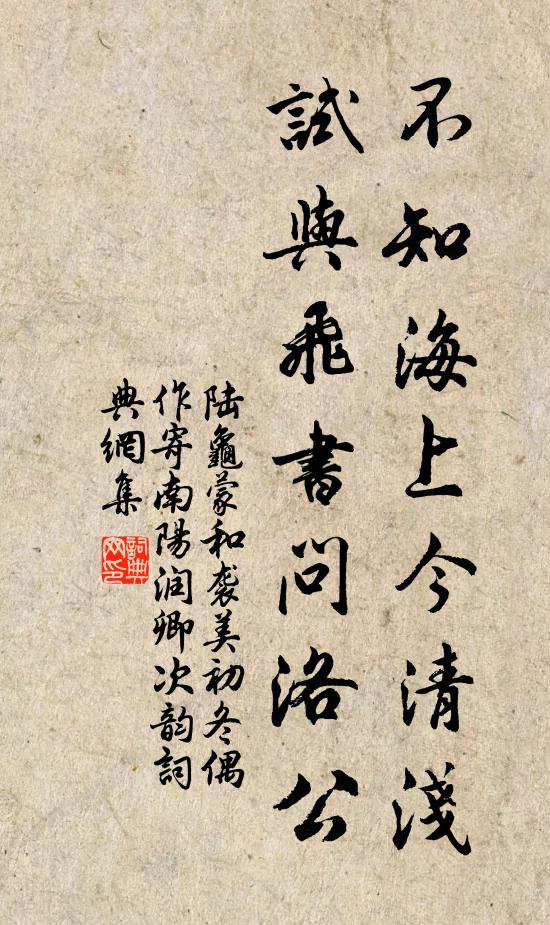 不知海上今清淺
試與飛書問洛公
陆龜蒙和袭美初冬偶
作寄南陽润卿次韵詞
典網集
詞典網印